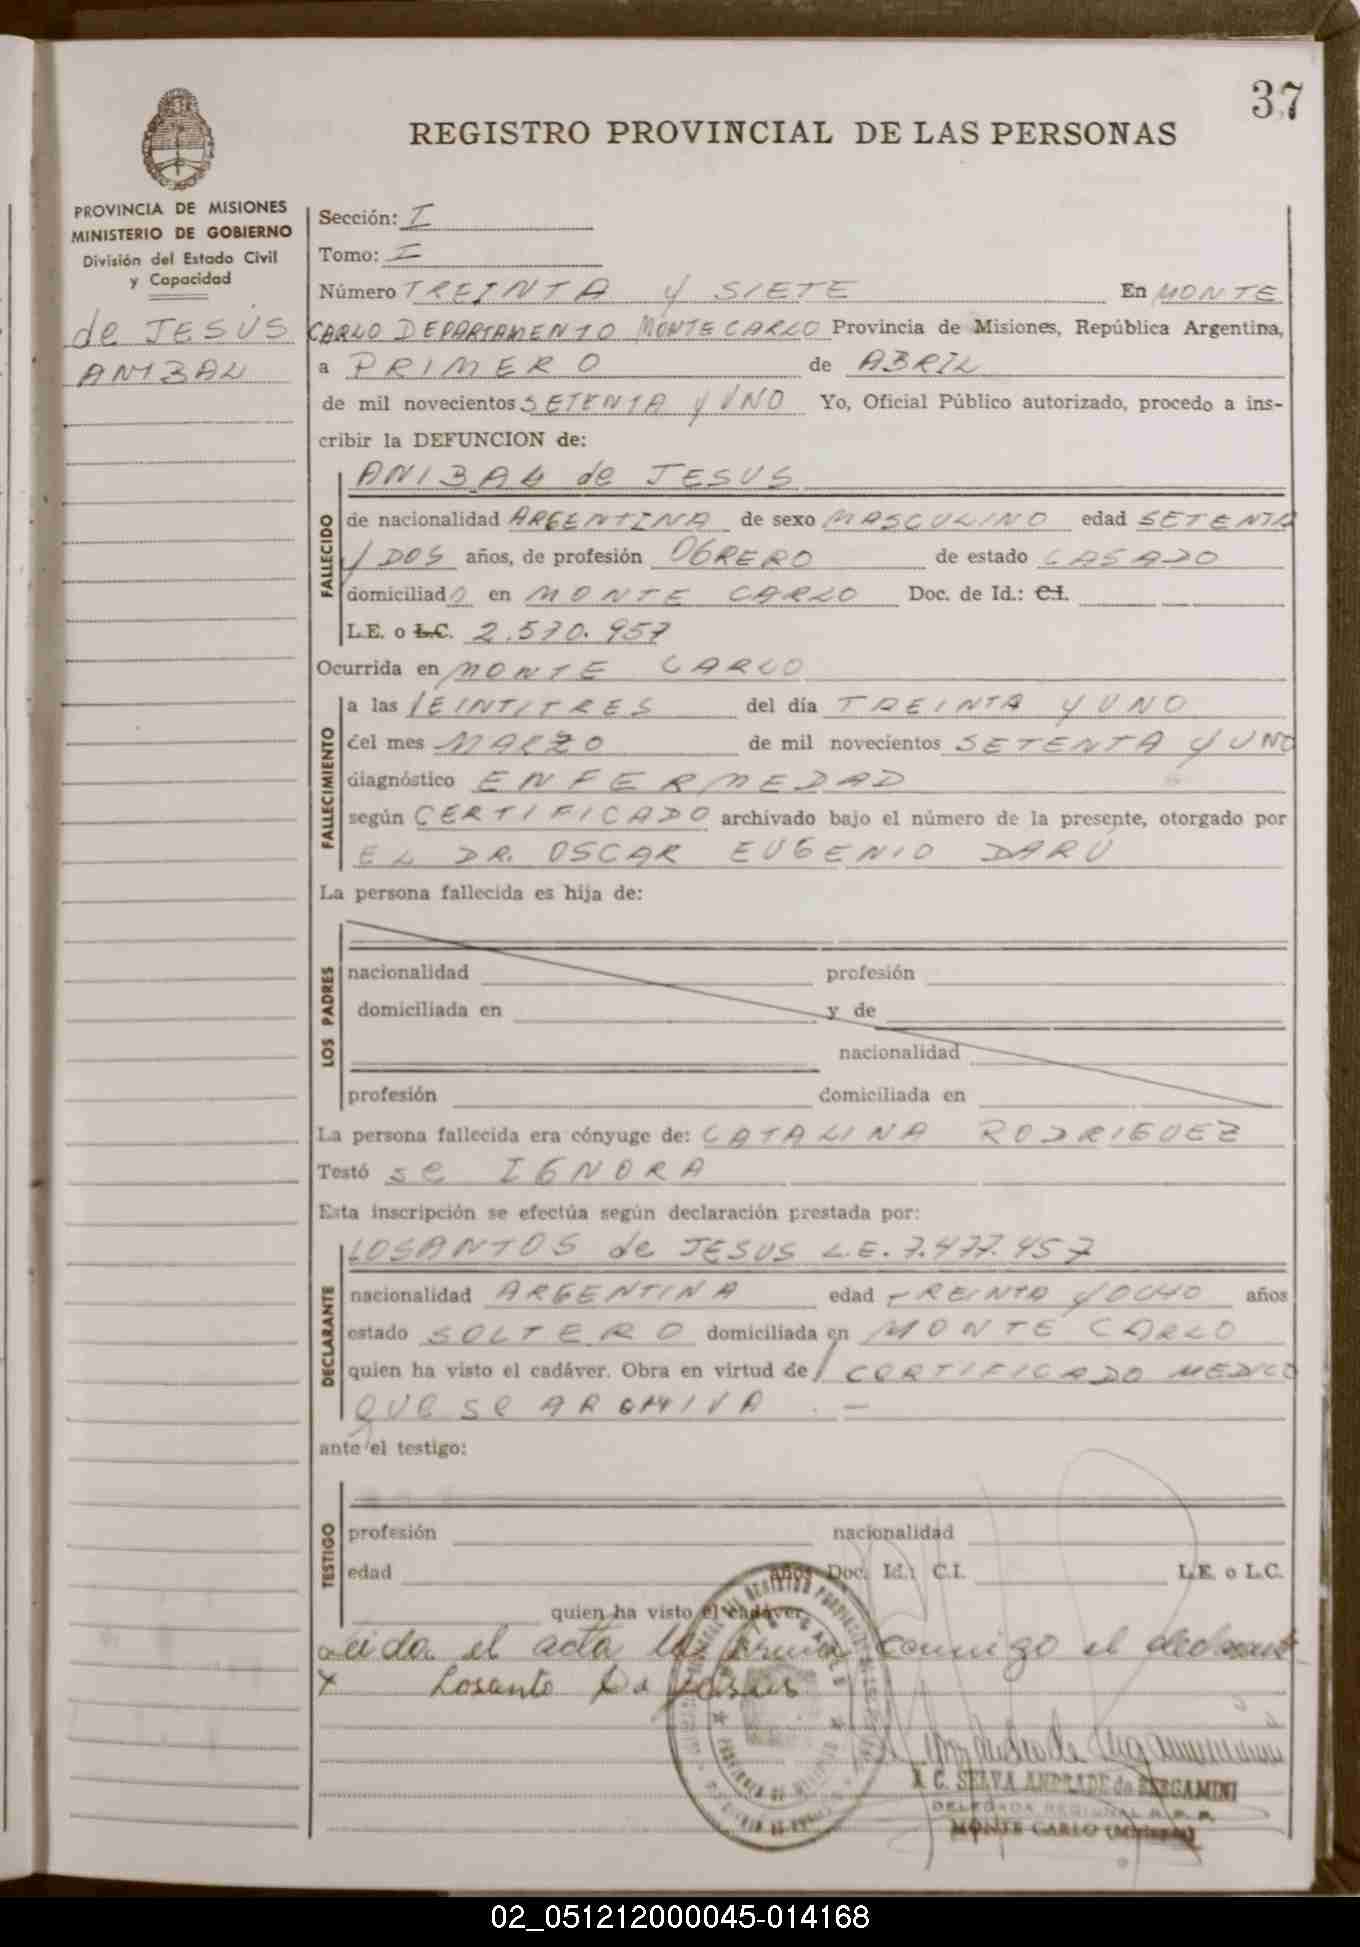 37
REGISTRO PROVINCIAL DE LAS PERSONAS
PROVINCIA DE MISIONES
MINISTERIO DE GOBIERNO
División del Estado Civil
y Capacidad
de JESUS
ANIBAL
Sección: I
Tomo: I
Número TREINTA y SIETE En MONTE
CARLO DEPARTAMENTO MONTECARLO Provincia de Misiones, República Argentina,
a PRIMERO de ABRIL
de mil novecientos SETENTA y UNO Yo, Oficial Público autorizado, procedo a ins-
cribir la DEFUNCION de:
ANIBAL de JESUS
FALLECIDO
de nacionalidad ARGENTINA de sexo MASCULINO edad SETENTA
y DOS años, de profesión OBRERO de estado CASADO
domiciliado en MONTE CARLO Doc. de Id.: C.I.
L.E. o L.C. 2.570.957
Ocurrida en MONTE CARLO
FALLECIMIENTO
a las VEINTITRES del día TREINTA y UNO
del mes MARZO de mil novecientos SETENTA y UNO
diagnóstico ENFERMEDAD
según CERTIFICADO archivado bajo el número de la presente, otorgado por
EL DR. OSCAR EUGENIO DARU
La persona fallecida es hija de:
LOS PADRES
nacionalidad profesión
domiciliada en y de
nacionalidad
profesión domiciliada en
La persona fallecida era cónyuge de: CATALINA RODRIGUEZ
Testó se IGNORA
Esta inscripción se efectúa según declaración prestada por:
LOSANTOS de JESUS L.E. 7.477.457
DECLARANTE
nacionalidad ARGENTINA edad TREINTA y OCHO años
estado SOLTERO domiciliada en MONTE CARLO
quien ha visto el cadáver. Obra en virtud de CERTIFICADO MEDICO
QUE Se ARCHIVA . —
ante el testigo:
TESTIGO
profesión nacionalidad
edad años Doc. Id.: C.I. L.E. o L.C.
quien ha visto el cadáver
Leida el acta la firma conmigo el declarante
X Losanto De Jesus
C. SELVA ANDRADE de BERGAMINI
DELEGADA REGIONAL R.P.P.
MONTE CARLO (Misiones)
02_051212000045-014168